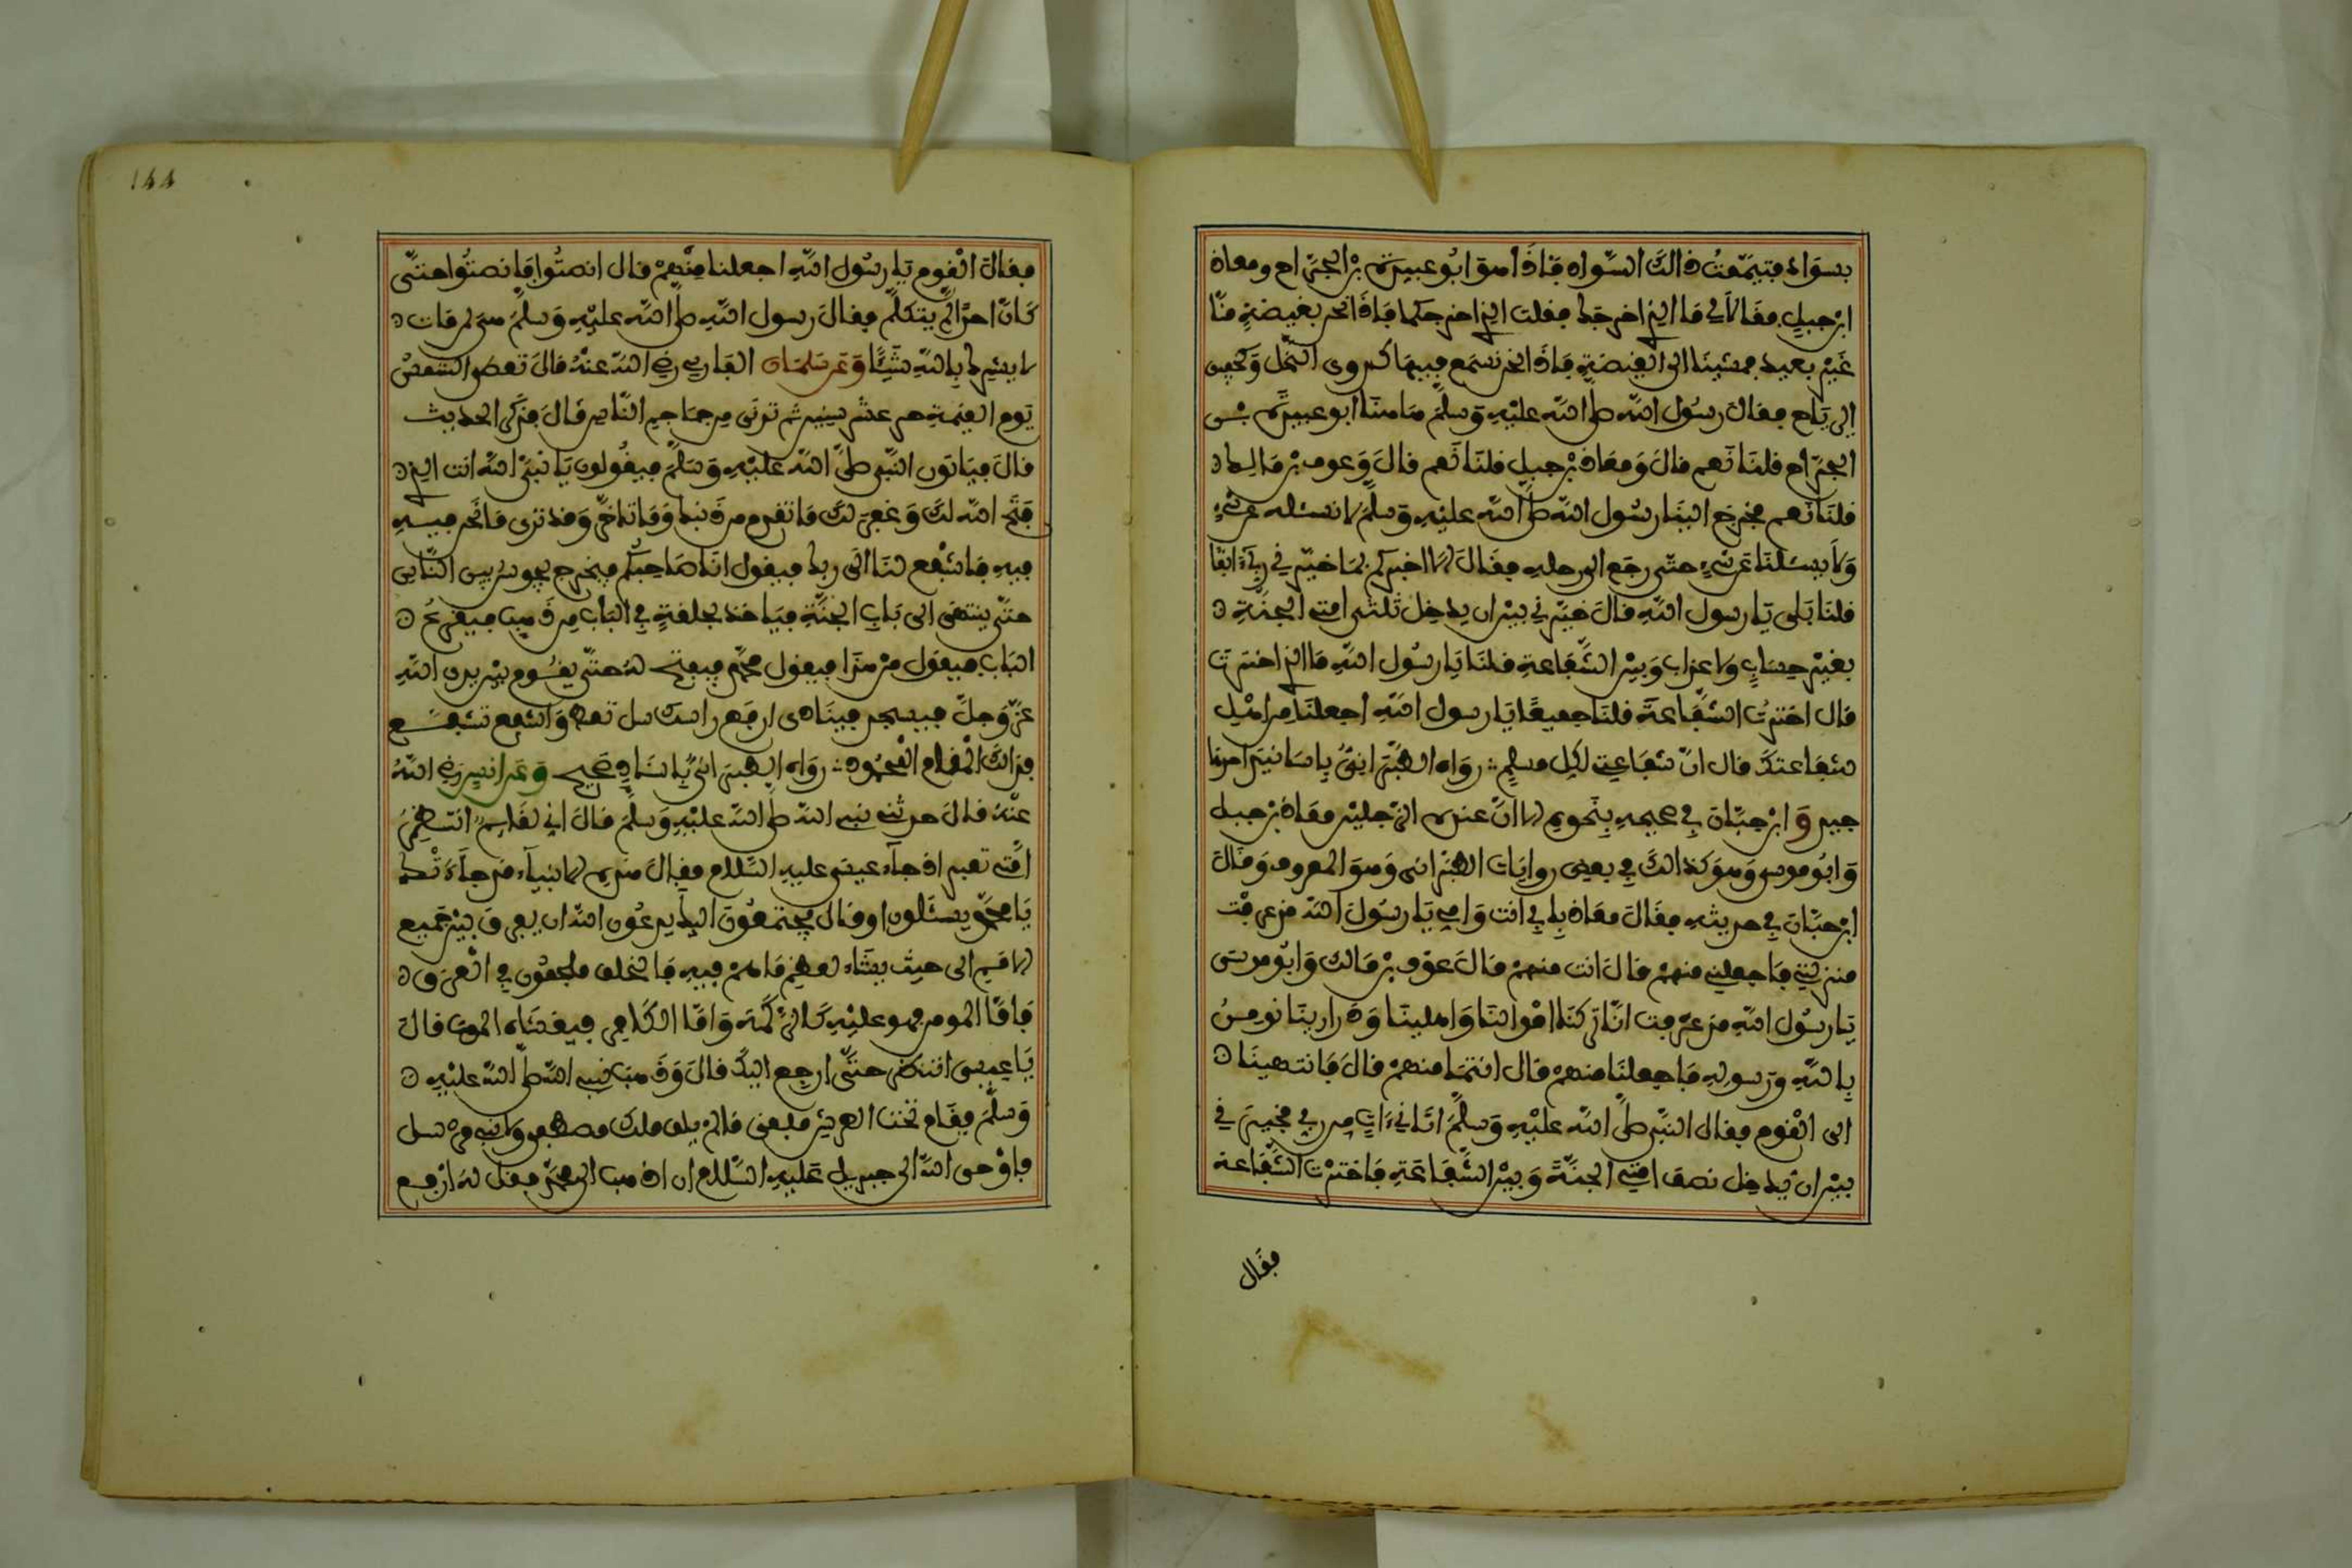 بسواد فتيممت ذالك السواد فاذا هو ابو عبيدة بن الجراح ومعاذ
ابن جبل فقالا لي ما الذي اخرجك فقلت الذي اخرجكما فاذا نحن بغيضة منا
غير بعيد فمشينا الى الغيضة فاذا نحن نسمع فيها كدوي النحل وكحفيف
الرياح فقال رسول الله صلى الله عليه وسلم هاهنا ابو عبيدة بن
الجراح قلنا نعم قال ومعاذ بن جبل قلنا نعم قال وعوف بن مالك
قلنا نعم فخرج الينا رسول الله صلى الله عليه وسلم لا نسئله عن شيء
ولا يسئلنا عن شيء حتى رجع الى رحله فقال الا اخبركم بما خيرني ربي آنفا
قلنا بلى يا رسول الله قال خيرني بين ان يدخل ثلثي امتي الجنة
بغير حساب ولا عذاب وبين الشفاعة قلنا يا رسول الله ما الذي اخترت
قال اخترت الشفاعة قلنا جميعا يا رسول الله اجعلنا من اهل
شفاعتك قال ان شفاعتي لكل مسلم رواه الطبراني باسانيد احدها
جيد وابن حبان في صحيحه بنحوه الا ان عنده الرجلين معاذ بن جبل
وابو موسى وهو كذالك في بعض روايات الطبراني وهو المعروف وقال
ابن حبان في حديثه فقال معاذ بابي انت وامي يا رسول الله قد عرفت
منزلتي فاجعلني منهم قال انت منهم قال عوف بن مالك وابو موسى
يا رسول الله قد عرفت انا تركنا اموالنا واهلينا وذرارينا نومن
بالله ورسوله فاجعلنا منهم قال انتما منهم قال فانتهينا
الى القوم فقال النبي صلى الله عليه وسلم اتاني ءات من ربي فخيرني
بين ان يدخل نصف امتي الجنة وبين الشفاعة فاخترت الشفاعة
فقال
144
فقال القوم يا رسول الله اجعلنا منهم قال انصتوا فانصتوا حتى
كان احدا لم يتكلم فقال رسول الله صلى الله عليه وسلم هي لمن مات
لا يشرك بالله شيئا وعن سلمان الفارسي رضي الله عنه قال تعطى الشمس
يوم القيمة حر عشر سنين ثم تدنى من جماجم الناس قال فذكر الحديث
قال فياتون النبي صلى الله عليه وسلم فيقولون يا نبي الله انت الذي
فتح الله لك وغفر لك ما تقدم من ذنبك وما تاخر وقد ترى ما نحن فيه
فيه فاشفع لنا الى ربك فيقول انا صاحبكم فيخرج يجوس بين الناس
حتى ينتهي الى باب الجنة فياخذ بحلقة في الباب من ذهب فيقرع
الباب فيقول من هذا فيقول محمد فيفتح له حتى يقوم بين يدي الله
عز وجل فيسجد فينادى ارفع راسك سل تعطه واشفع تشفع
فذالك المقام المحمود رواه الطبراني باسناد صحيح وعن انس رضي الله
عنه قال حدثني نبي الله صلى الله عليه وسلم قال اني لقايم انتظر
امتي تعبر اذ جاء عيسى عليه السلام فقال هذه الانبياء قد جاءتك
يا محمد يسئلون او قال يجتمعون اليك يدعون الله ان يفرق بين جميع
الامم الى حيث يشاء لعظم ما هم فيه فالخلق ملجمون في العرق
فاما المومن فهو عليه كالزكمة واما الكافر فيغشاه الموت قال
يا عيسى انتظر حتى ارجع اليك قال وذهب نبي الله صلى الله عليه
وسلم فقام تحت العرش فلقى ما لم يلق ملك مصطفى ولا نبي مرسل
فاوحى الله الى جبريل عليه السلام ان اذهب الى محمد فقل له ارفع